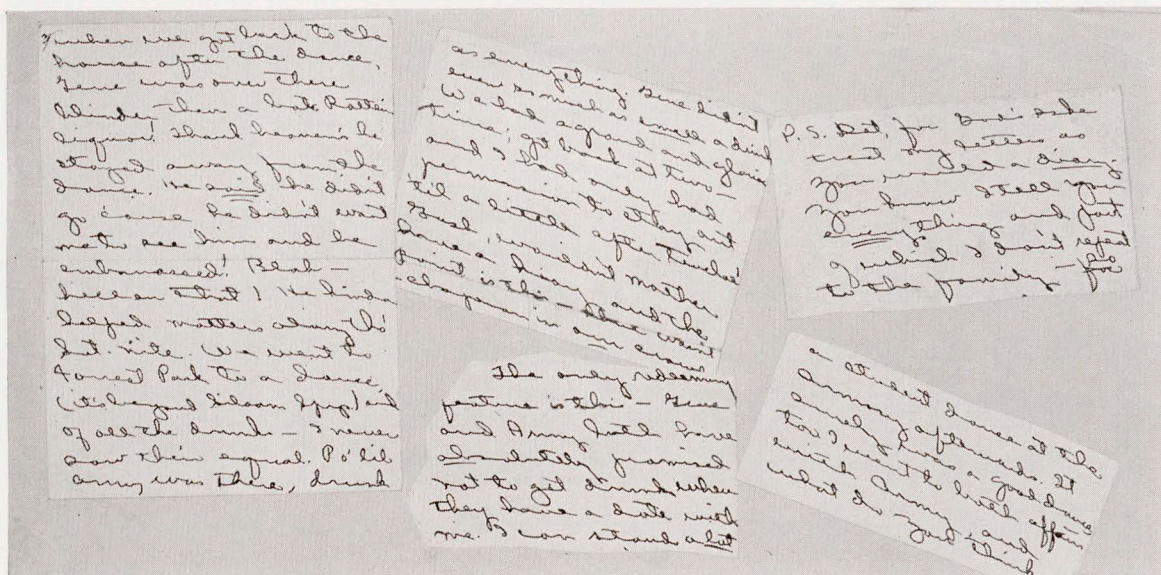 when we got back to the
house after the dance,
Gene was over there
blinder than a bat. Rotten
liquor! Thank heaven's he
stayed away from the
dance. He said he didn't
go 'cause he didn't want
me to see him and be
embarrassed! Blah –
hell on that! He kinda
helped matters along tho'
Sat. nite. We went to
Forrest Park to a dance,
(it's beyond Siloam Spgs) and
of all the drunks – I never
saw their equal. Po' lil
Army was there, drunk
as everything. Gene didn't
even so much as smell a drink
We had a grand and glorious
time, got back at two –
and I had only had
permission to stay out
'til a little after twelve!
Gosh, wouldn't mother
have a hissy and the
point is this – there wasn't
chaperon in our crowd
The only redeeming
feature is this – Gene
and Army both have
absolutely promised
not to get drunk when
they have a date with
me. I can stand a lot
P.S. Dot, for God's sake
treat my letters as
you would a diary.
You know I tell you
everything and just
of which I don't repeat
to the family – for
a student dance at the
Armory afterwards. It
surely was a good dance
too. I went to both affairs
with Army, and
what do you think